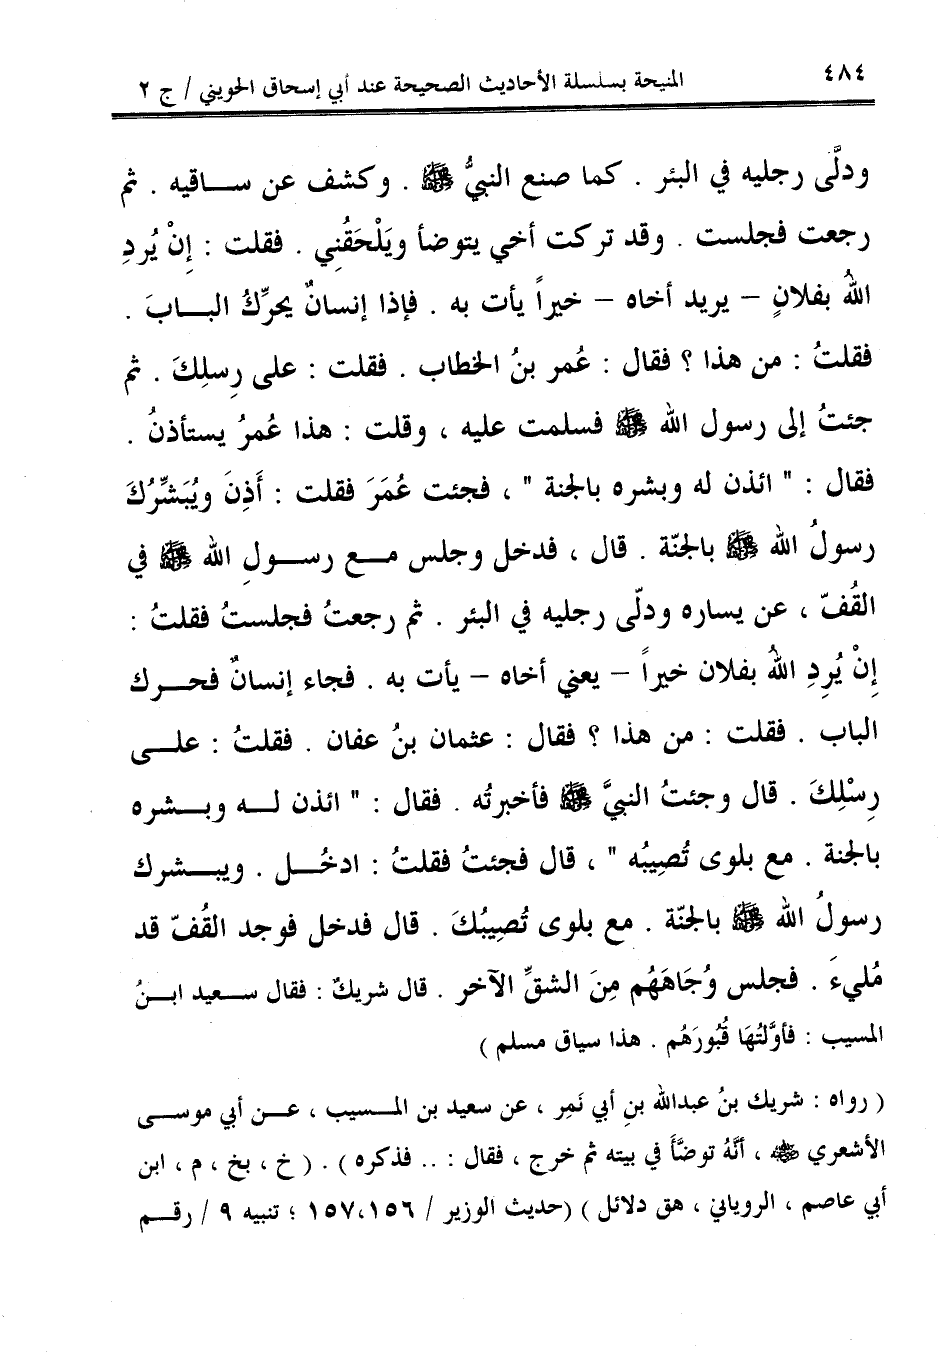 ٤٨٤
المنيحة بسلسلة الأحاديث الصحيحة عند أبي إسحاق الحويني / ج ٢
ودلَّى رجليه في البئر . كما صنع النبيُّ ﷺ . وكشف عن ساقيه . ثم
رجعت فجلست . وقد تركت أخي يتوضأ ويَلْحَقُنِي . فقلت : إِنْ يُرِدِ
اللهُ بفلانٍ – يريد أخاه – خيراً يأت به . فإذا إنسانٌ يحرِّكُ البابَ .
فقلتُ : من هذا ؟ فقال : عُمر بنُ الخطاب . فقلت : على رِسلِكَ . ثم
جئتُ إلى رسول الله ﷺ فسلمت عليه ، وقلت : هذا عُمرُ يستأذنُ .
فقال : " ائذن له وبشره بالجنة " ، فجئت عُمَرَ فقلت : أَذِنَ ويُبَشِّرُكَ
رسولُ الله ﷺ بالجنّة . قال ، فدخل وجلس مع رسولِ الله ﷺ في
القُفّ ، عن يساره ودلّى رجليه في البئر . ثم رجعتُ فجلستُ فقلتُ :
إِنْ يُرِدِ اللهُ بفلان خيراً – يعني أخاه – يأت به . فجاء إنسانٌ فحرك
الباب . فقلت : من هذا ؟ فقال : عثمان بنُ عفان . فقلتُ : على
رِسْلِكَ . قال وجئتُ النبيَّ ﷺ فأخبرتُه . فقال : " ائذن له وبشره
بالجنة . مع بلوى تُصِيبُه " ، قال فجئتُ فقلتُ : ادخُل . ويبشرك
رسولُ الله ﷺ بالجنّة . مع بلوى تُصِيبُكَ . قال فدخل فوجد القُفّ قد
مُليءَ . فجلس وُجَاهَهُم مِنَ الشقِّ الآخر . قال شريكٌ : فقال سعيد ابنُ
المسيب : فأوَّلتُهَا قُبُورَهُم . هذا سياق مسلم )
( رواه : شريك بنُ عبدالله بنِ أبي نَمِر ، عن سعيد بن المسيب ، عن أبي موسى
الأشعري ﷺ ، أنَّهُ توضَّأَ في بيته ثم خرج ، فقال : .. فذكره ) . ( خ ، بخ ، م ، ابن
أبي عاصم ، الروياني ، هق دلائل ) (حديث الوزير / ١٥٦،١٥٧ ؛ تنبيه ٩ / رقم